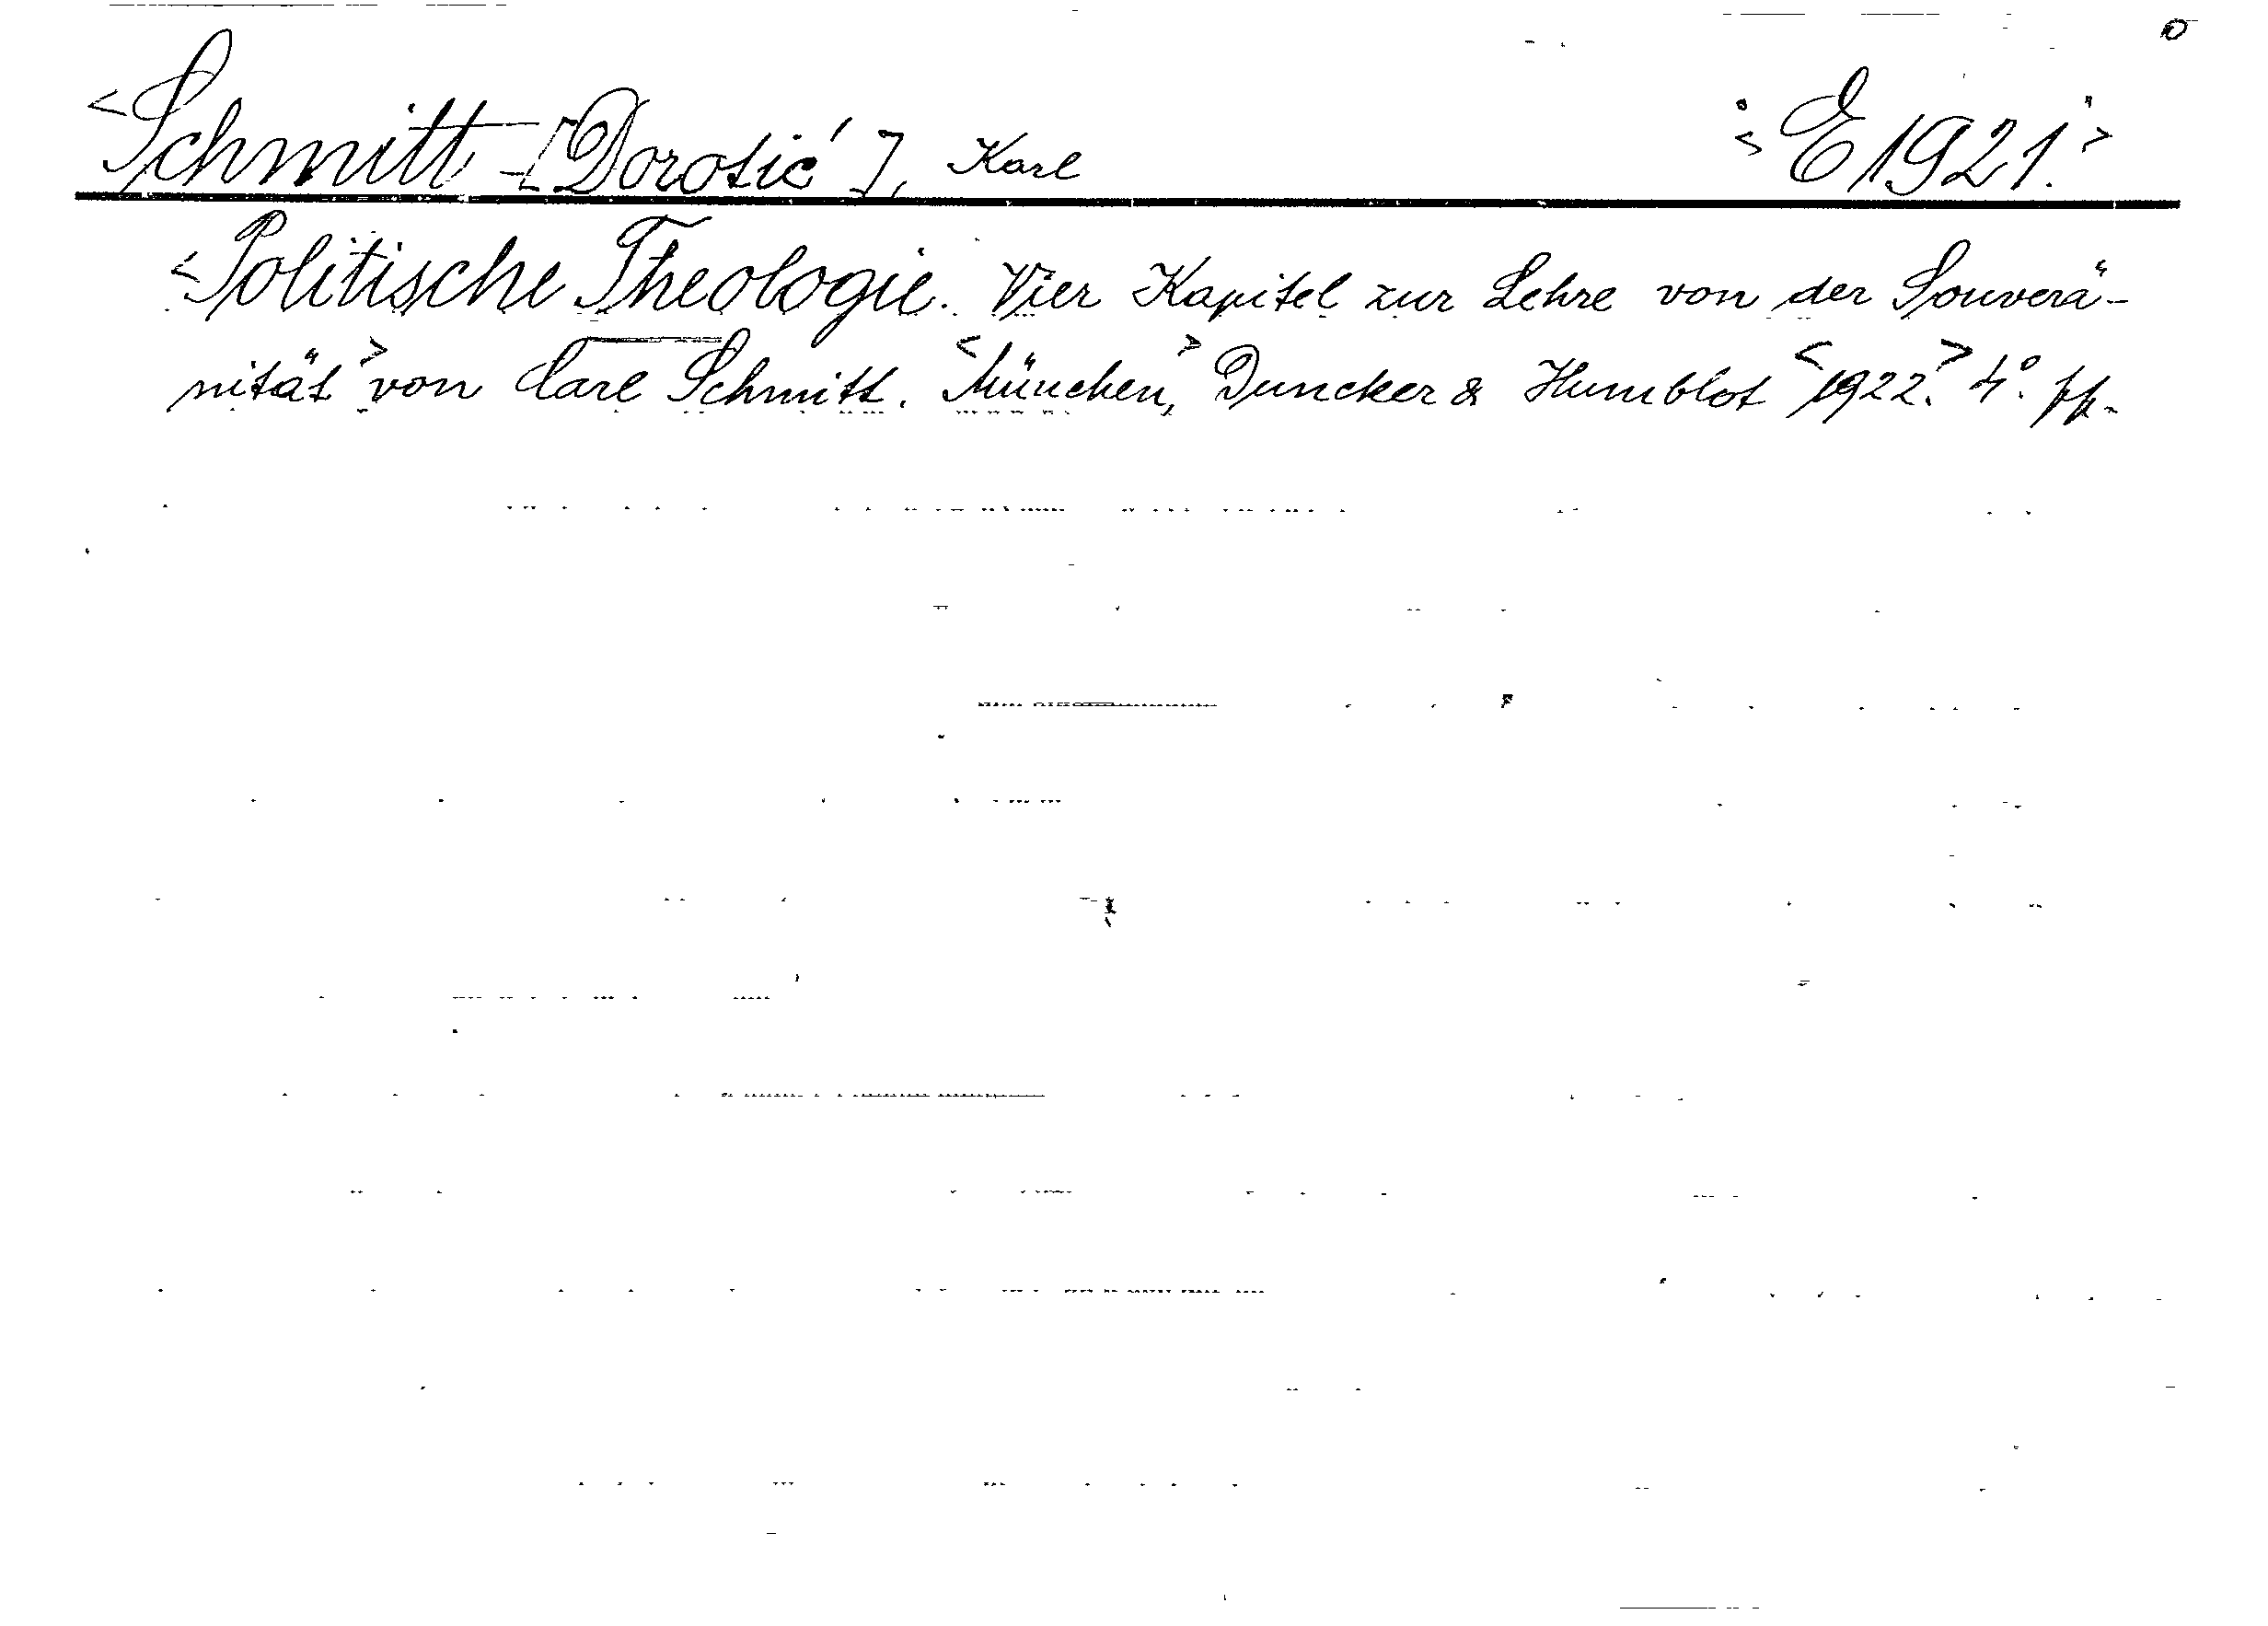 <Schmitt-[Dorotić], Karl <E1921.>
<Politische Theologie. Vier Kapitel zur Lehre von der Souverä-
nität> von Carl Schmitt. <München,> Duncker & Humblot <1922.> 4°. pp.